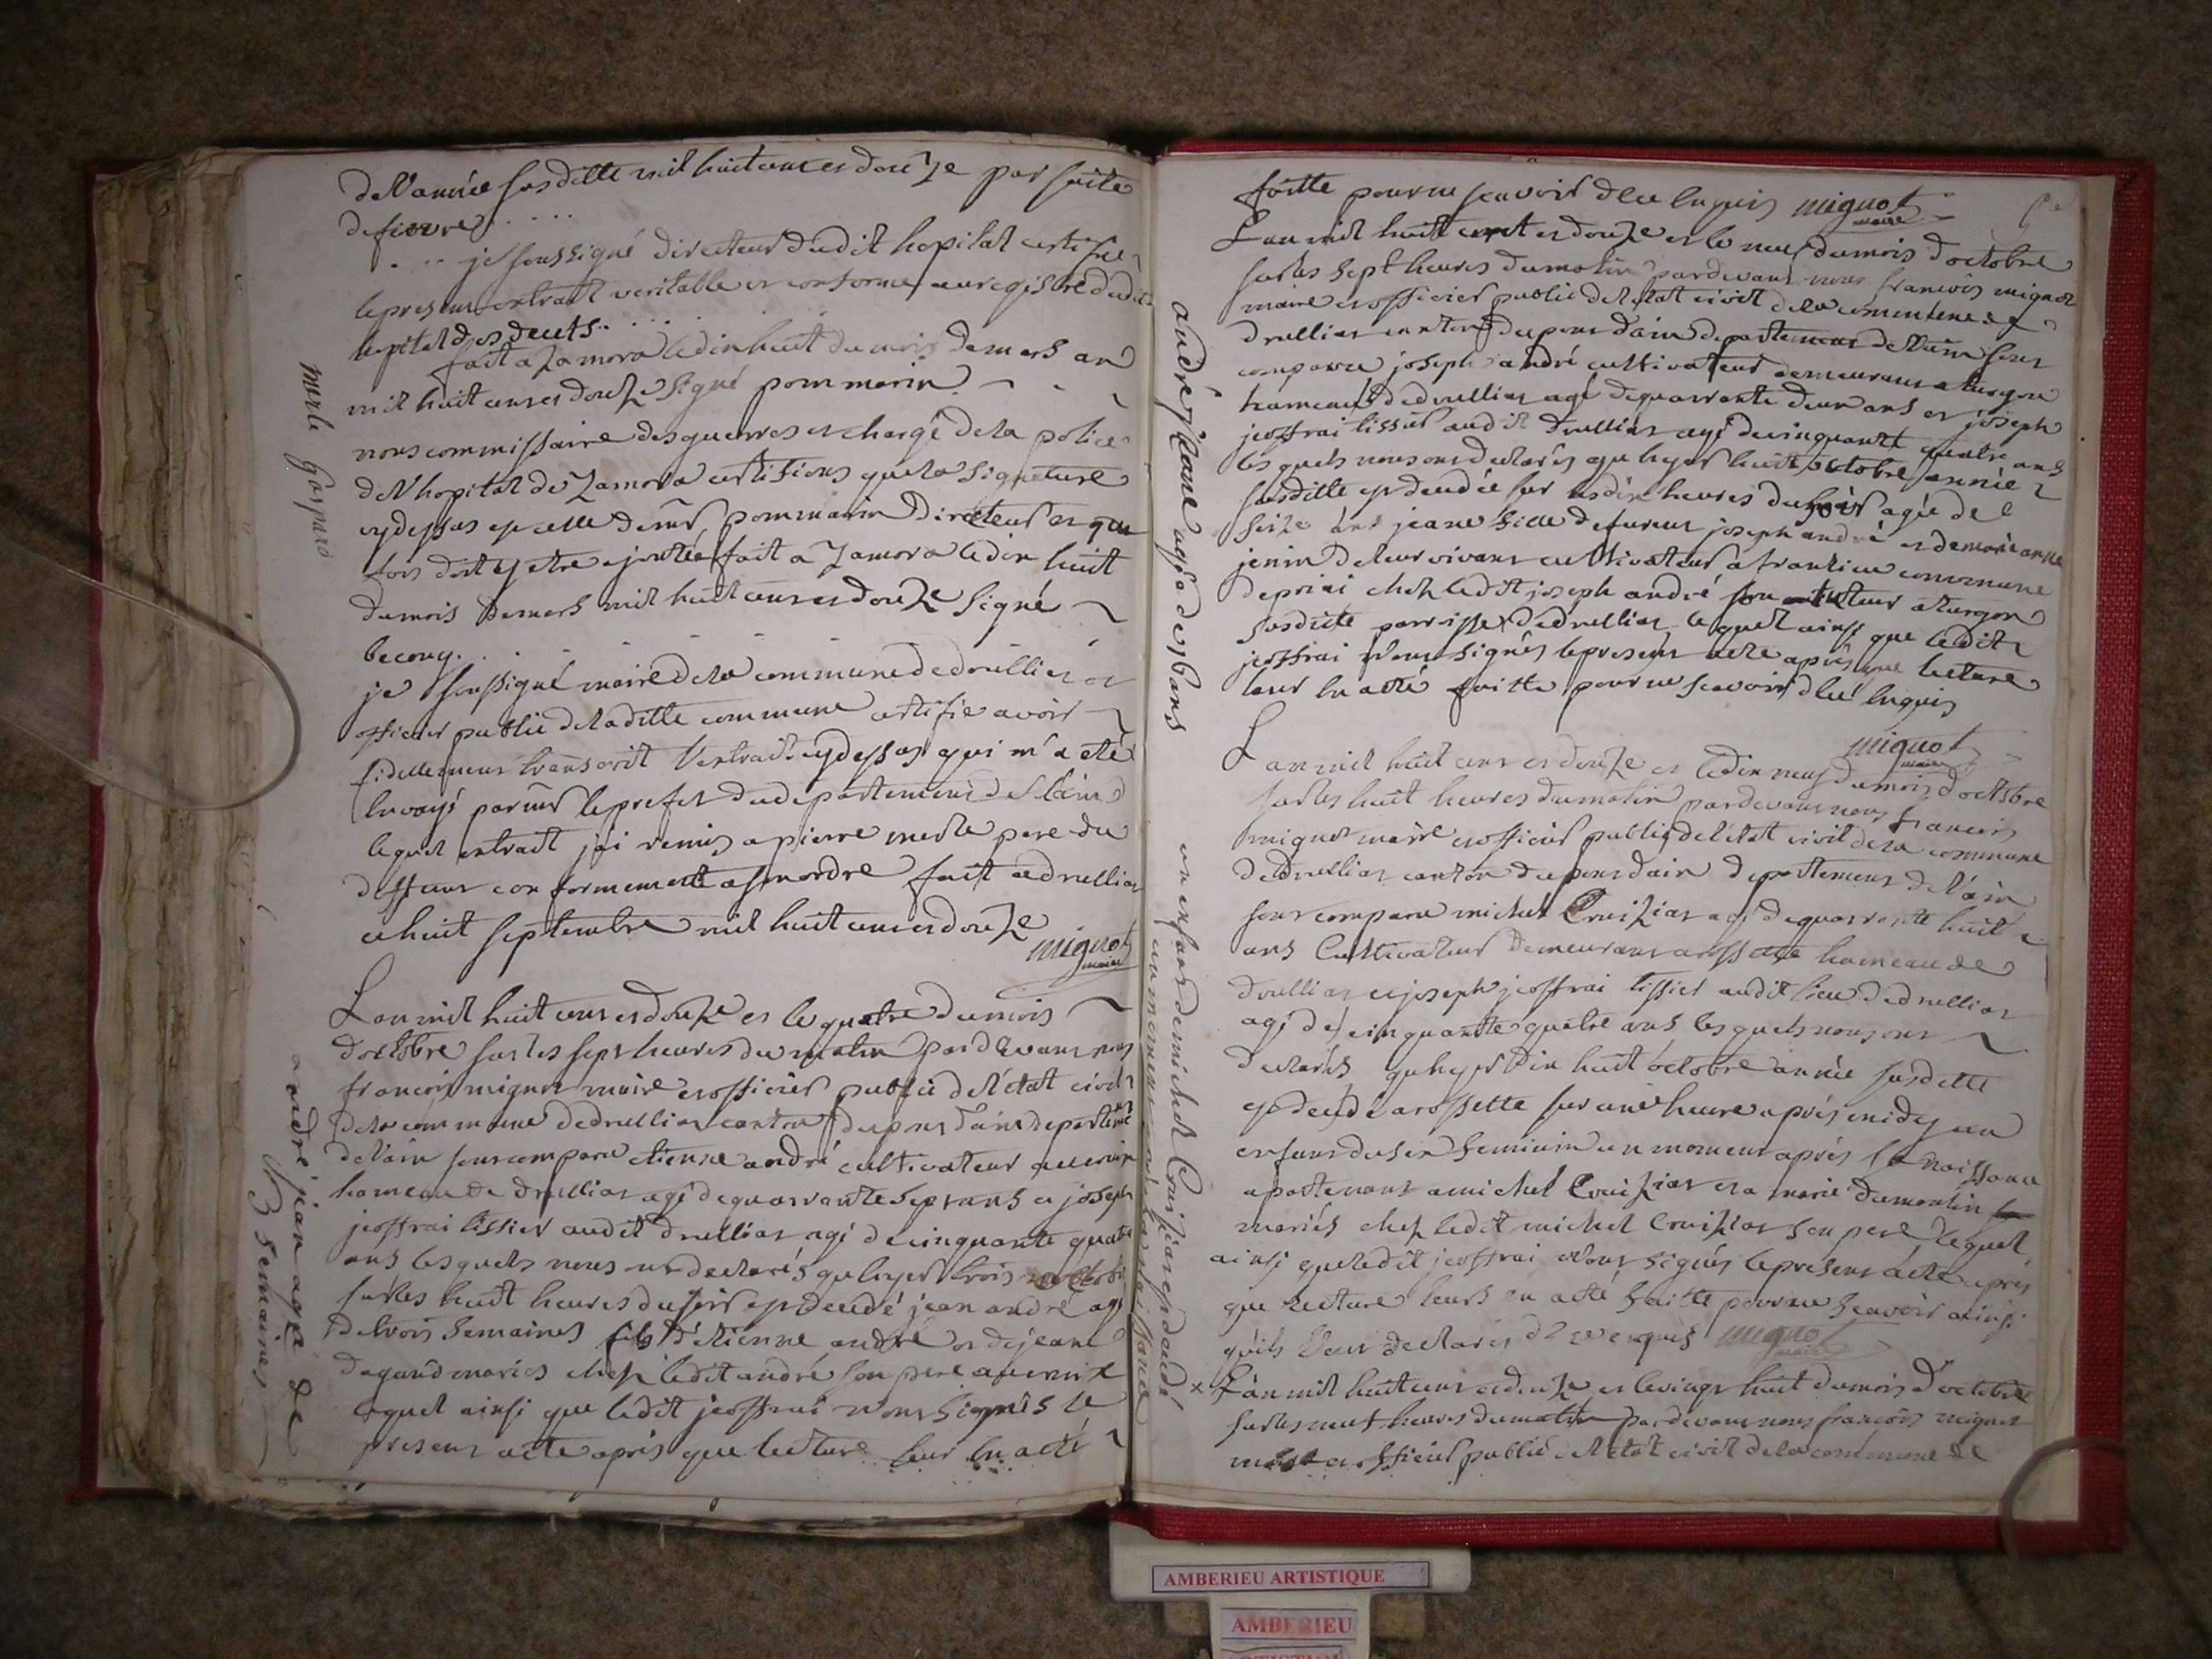 de l'année susditte mil huit cent et douze par suite
de fievre
je soussigné directeur dudit hopital certifie
le present extrait veritable et conforme au registre dudit
hopital des decets
fait a Zamora le dix huit du mois de mars an
mil huit cent et douze signé pommarin
nous commissaire des guerres et chargé de la police
de l'hopital de Zamora certifions que la signature
cy dessus est celle de mr pommarin directeur et que
fois doit y etre ajoutée fait a Zamora le dix huit
du mois de mars mil huit cent et douze signé
becouy.
je soussigné maire de la commune de druillias et
officier public de laditte commune certifie avoir
fidellement transcrit l'extrait cy dessus qui m'a eté
envoyé par mr le prefet du departement de l'ain
lequel extrait j'ai remis a pierre merle pere du
deffunt conformement a son ordre fait a drullias
ce huit septembre mil huit cent et douze
mignot
maire
L'an mil huit cent et douze et le quatre du mois
d'octobre sur les sept heures du matin par devant nous
francois mignot maire et officier public de l'état civil
de la commune de drullias canton du pont d'ain departement
de l'ain sont comparu etienne andré cultivateur
hameau de drullias agé de quarrante sept ans et joseph
jeoffrai tissier audit drullias agé de cinquante quatre
ans lesquels nous ont declarés qu'hyer trois octobre
sur les huit heures du soir est decedé jean andré agé
de trois semaines fils d'étienne andré et de jeane
dagand mariés chez ledit andré son pere
lequel ainsi que ledit jeoffrai n'ont signés le
present acte après que lecture leur en a eté
merle Gaspard
andré jean agé de
3 semaines
faitte pour ne scavoir de ce enquis mignot
maire
L'an mil huit cent et douze et le neuf du mois d'octobre
sur les sept heures du matin par devant nous francois mignot
maire et officier public de l'état civil de la commune de
drullias canton du pont d'ain departement de l'ain sont
comparu joseph andré cultivateur demeurant a turgon
hameau de drullias agé de quarrante deux ans et joseph
jeoffrai tissier audit drullias agé de cinquante quatre ans
lesquels nous ont declarés qu'hyer huit octobre année
susditte est decedée sur les dix heures du soir agée de
seize ans jeane fille de fureut joseph andré et de marie anne
jenin de leur vivant cultivateur a commune
de priai chez ledit joseph andré son tuteur a turgon
susditte parroisse de drullias lequel ainsi que ledit
jeoffrai n'ont signés le present acte après que lecture
leur en a eté faitte pour ne scavoir de ce enquis
mignot
maire
L'an mil huit cent et douze et le dix neuf du mois d'octobre
sur les huit heures du matin par devant nous francois
mignot maire et officier public de l'état civil de la commune
de drullias canton du pont d'ain departement de l'ain
sont comparu michel Cruizias agé de quarrante huit
ans Cultivateur demeurant a rossette hameau de
drullias et joseph jeoffrai tissier audit lieu de drullias
agé de cinquante quatre ans lesquels nous ont
declarés qu'hyer dix huit octobre année susditte
est decedé a rossette sur une heure après midy un
enfant du sex feminin un moment après sa naissance
apartenant a michel Cruizias et a marie dumoulin
mariés chez ledit michel Cruizias son pere lequel
ainsi que ledit jeoffrai n'ont signés le present acte après
que lecture leurs en a eté faitte pour ne scavoir ainsi
qu'ils l'ont declarés de ce enquis mignot
maire
x L'an mil huit cent et douze et le vingt huit du mois d'octobre
sur les neuf heures du matin par devant nous francois mignot
maire et officier public de l'état civil de la commune de
andré jeane agée de 16 ans
un enfant de michel Cruizias est decedé
un moment après sa naissance
AMBERIEU ARTISTIQUE
AMBERIEU
ARTISTIQUE